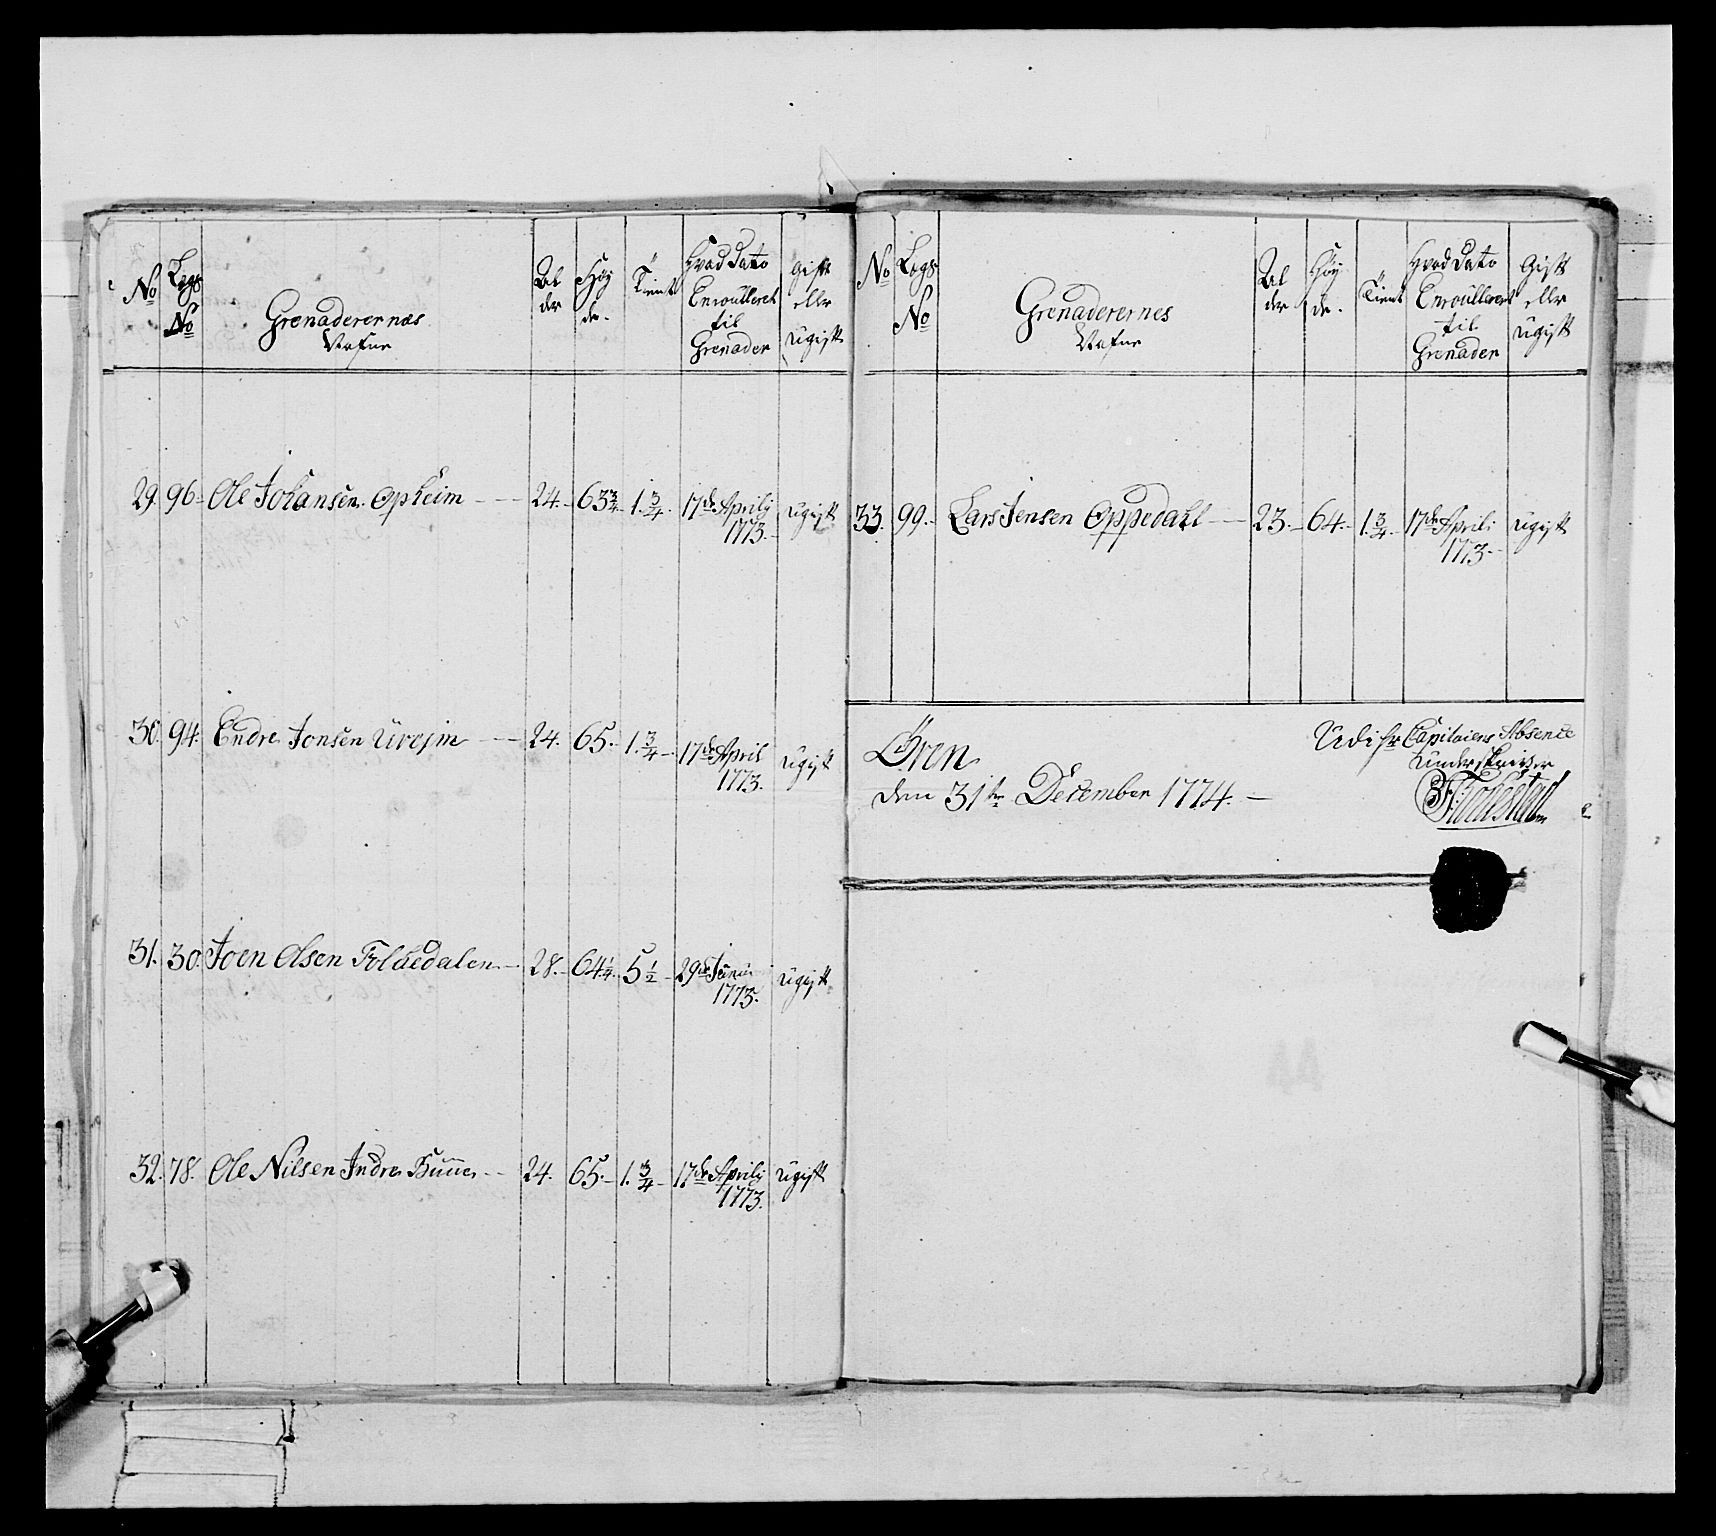 No
Legs
No
Grenaderernes
Nafne
Al
der
Høy
de.
Tient
Hvad Dato
Enroulleret
til
Grenader
Gift
eller
ugift
29. 96. Ole Johansen Opheim 24. 63 3/4 1. 3/4. 17de Aprilij ugift
1773.
30. 94. Endre Jonsen Urejm 24. 65. 1. 3/4 17de April ugift
1773.
31. 30. Joen Olsen Folkedalen 28. 64 1/4. 5 1/2 29de Junii ugift
1773.
32. 78. Ole Nilsen Indre 24. 65. 1. 3/4 17de Aprilij ugift
1773.
No
Legs
No
Grenaderernes
Nafne
Al
der
Høy
de.
Tient
Hvad Dato
Enroulleret
til
Grenader
Gift
eller
ugift
33. 99. Lars Jensen Oppedahl 23. 64. 1. 3/4 17de Aprili ugift
1773.
Øren
den 31te December 1774.
Udi hr Capitaiens Absence
underskriver